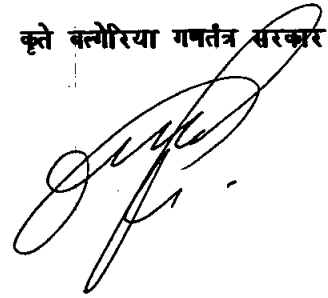 कृते बल्गेरिया गणतंत्र सरकार